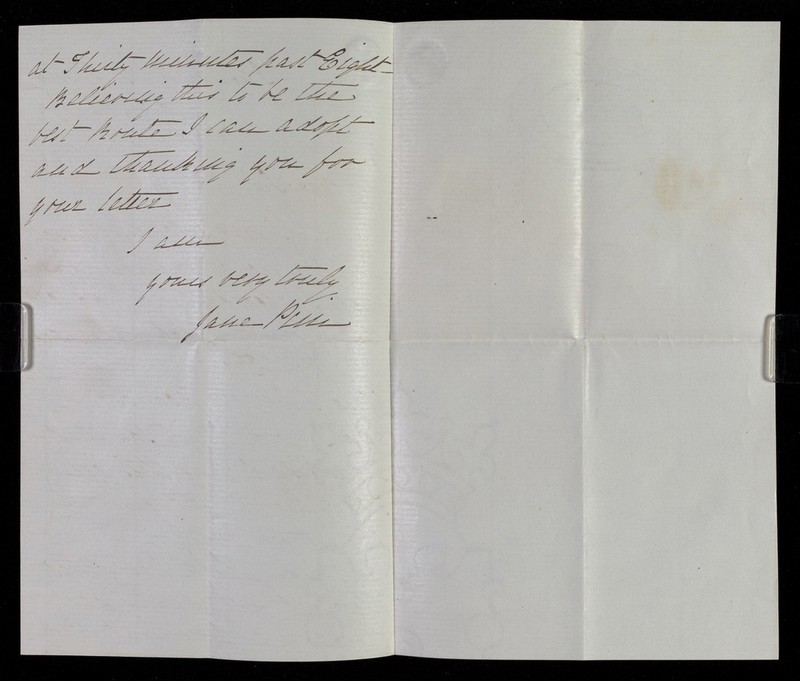 at Thirty Minutes past Eight -
Believing this to be the
best Route I can adopt
and thanking you for
your letter
I am
yours very truly
Jane